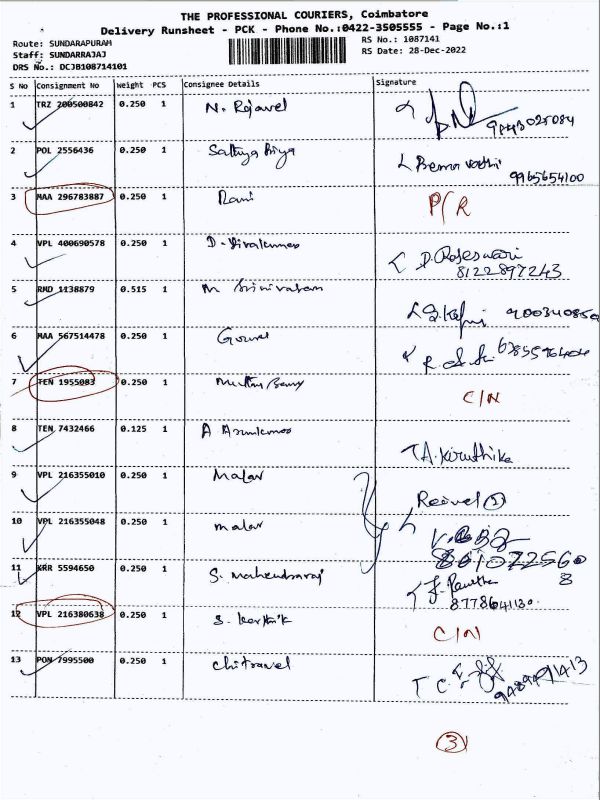 THE PROFESSIONAL COURIERS, Coimbatore
Delivery Runsheet - PCK - Phone No.:0422-3505555 - Page No.:1
Route: SUNDARAPURAM
Staff: SUNDARRAJAJ
DRS No.: DCJB108714101
RS No.: 1087141
RS Date: 28-Dec-2022
S No Consignment No Weight PCS Consignee Details Signature
1 TRZ 200500842 0.250 1 N. Rajavel
2 POL 2556436 0.250 1 Sathya Priya
9965654100
3 MAA 296783887 0.250 1 Rani P/R
4 VPL 400690578 0.250 1 D. Sivakumar D. Rajeswari
8122897243
5 RMD 1138879 0.515 1 M Srinivasan
6 MAA 567514478 0.250 1
7 TEN 1955083 0.250 1 C/N
8 TEN 7432466 0.125 1 A Arunkumar A. Kiruthika
9 VPL 216355010 0.250 1 Malar
10 VPL 216355048 0.250 1 Malar
11 KRR 5594650 0.250 1 S. Mahendraraj
12 VPL 216380638 0.250 1 S. Karthik C/N
13 PON 7995500 0.250 1 Chitravel
3